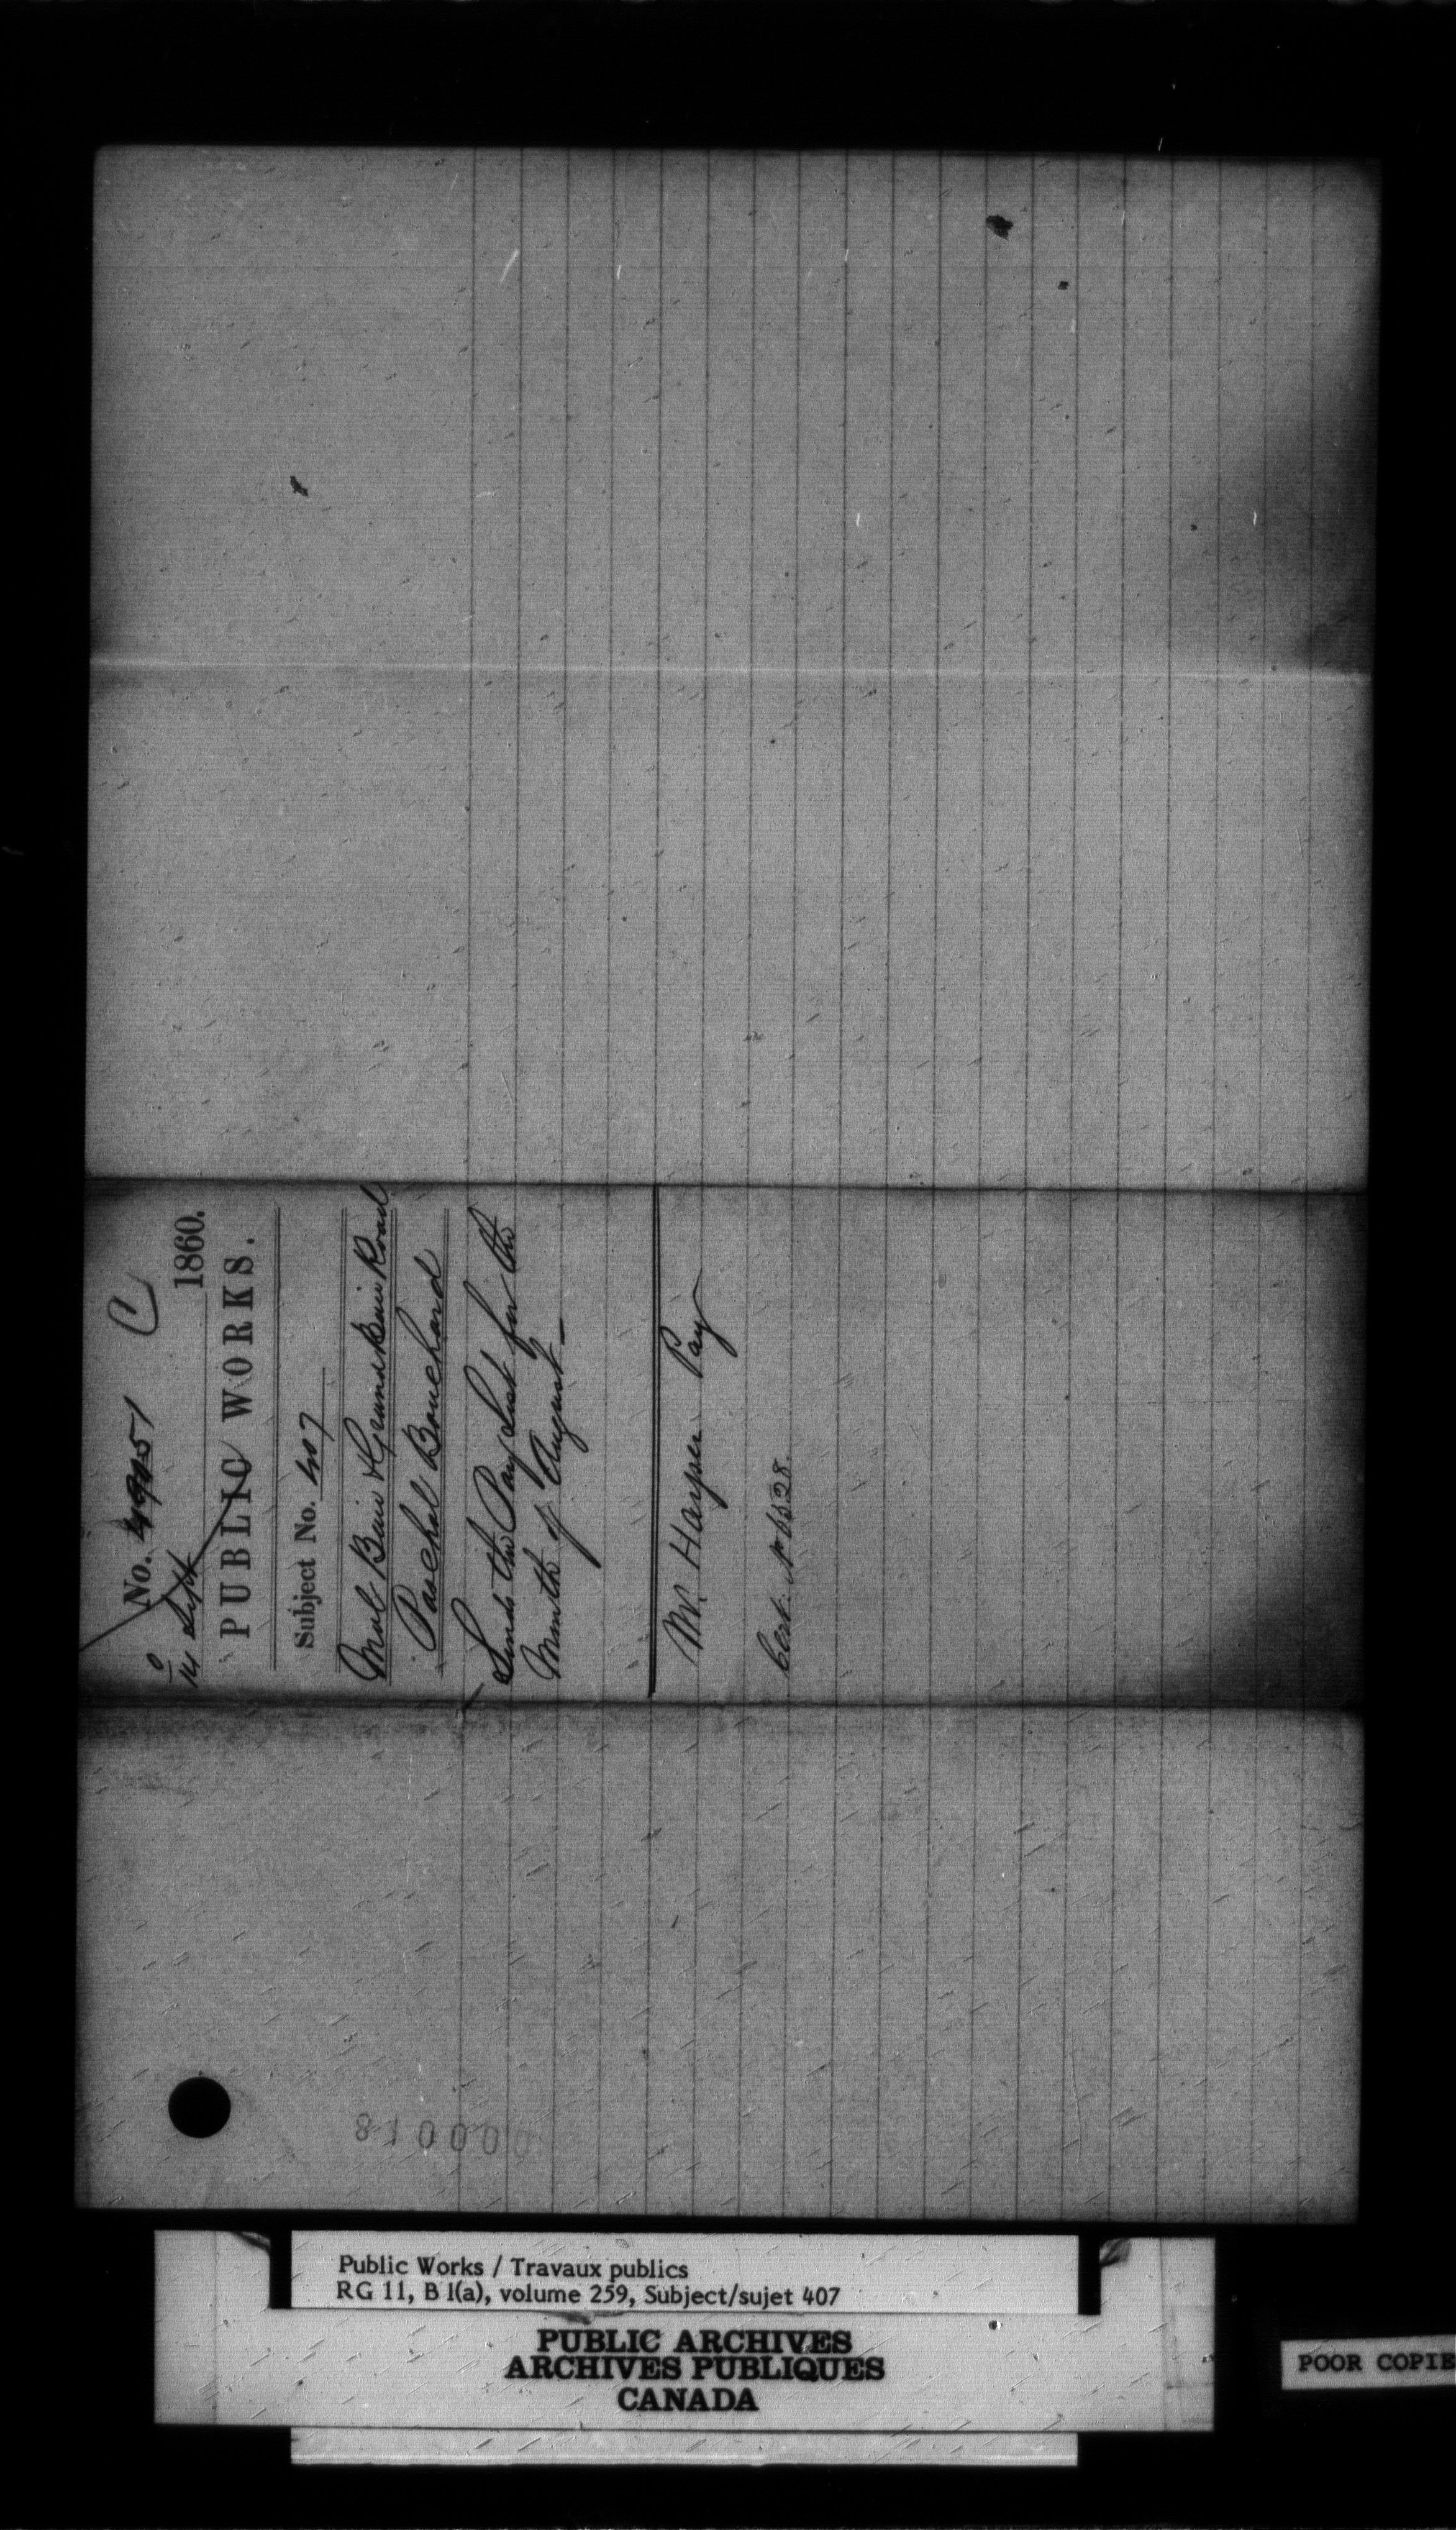 No. 49051
14 Sept 1860.
PUBLIC WORKS.
Subject No. 407
Mal Baie & Grand Baie Road
Paschal Bouchard
Sends the Pay List for the
Month of August—
Mr. Harper Pay
Cert. No 6528.
810000
Public Works / Travaux publics
RG 11, B 1(a), volume 259, Subject/sujet 407
PUBLIC ARCHIVES
ARCHIVES PUBLIQUES
CANADA
POOR COPIE